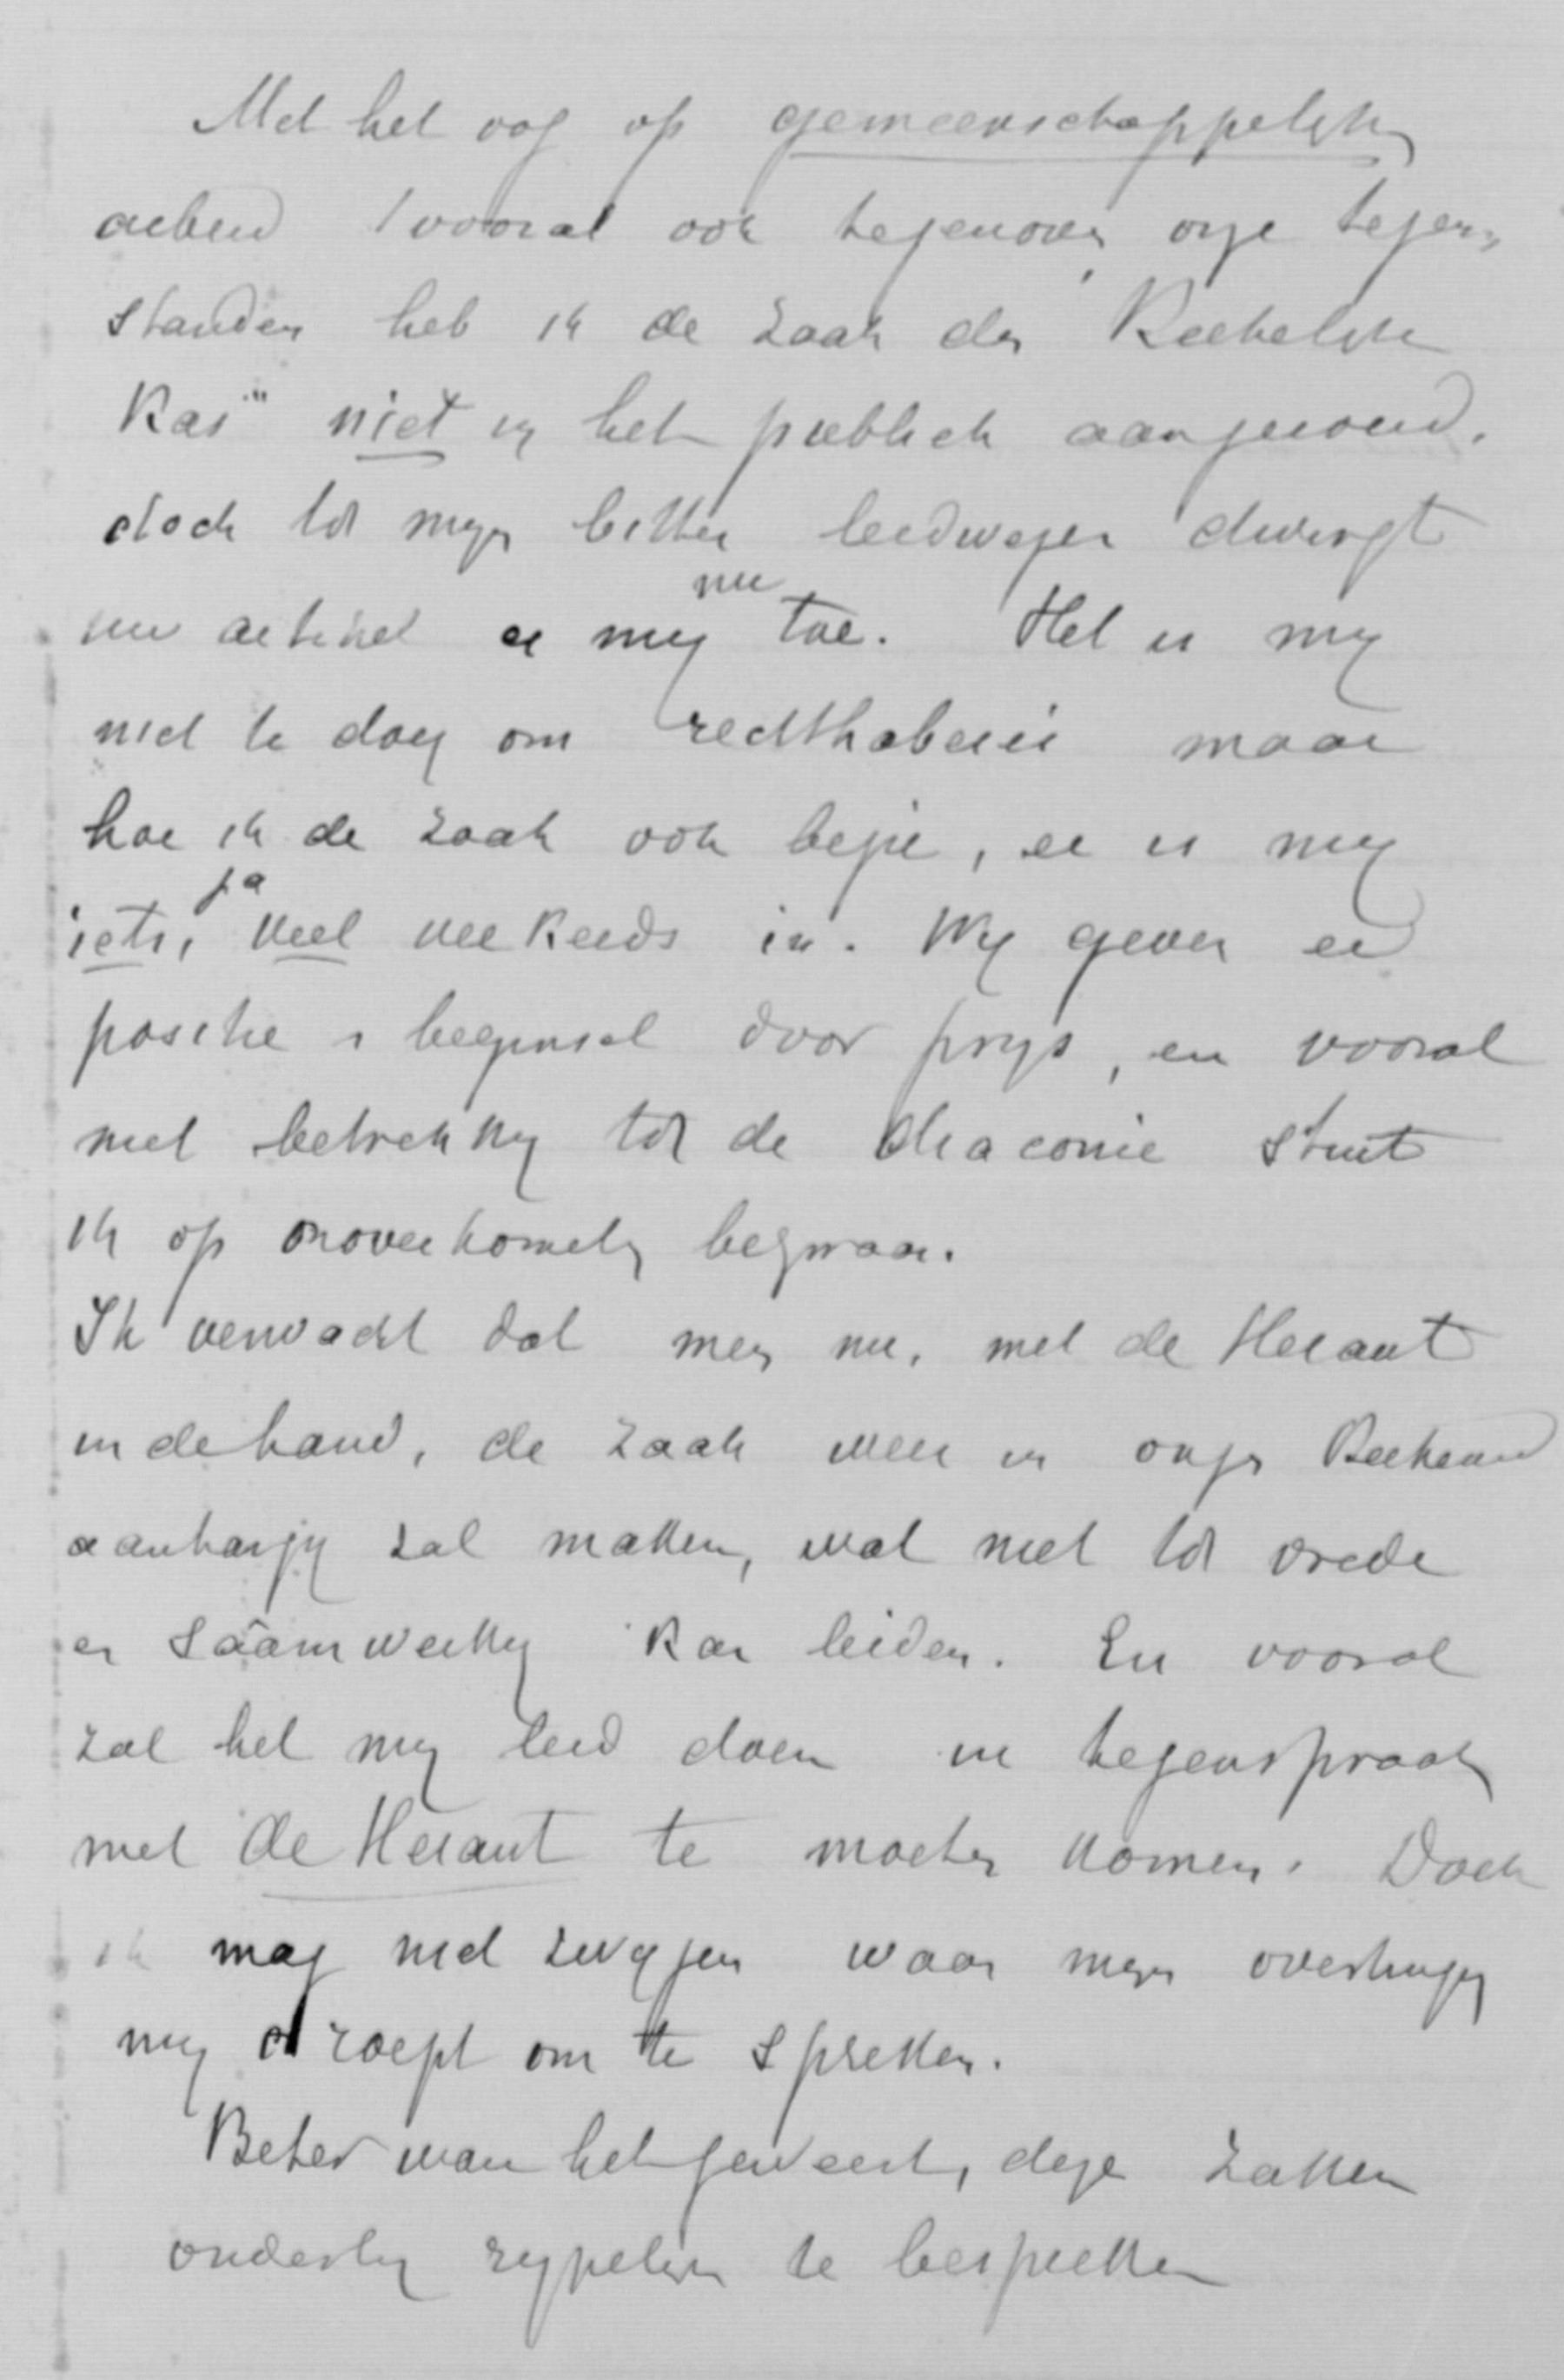 Met het oog op gemeenschappelijk
arbeid / vooral ook tegenover onze tegen-
standers heb ik de zaak der Kerkelijke
Kas" niet in het publiek aangeroerd.
doch tot mijn bitter leedwezen dwingt
uw artikel er mij nu toe. Het is mij
niet te doen om rechthaberei maar
hoe ik de zaak ook bezie, er is mij
iets, ja veel verkeerds in. Wij geven er
positie & beginsel door prijs, en vooral
met betrekking tot de diaconie stuit
ik op onoverkomelijk bezwaar.
Ik verwacht dat men nu, met de Heraut
in de hand, de zaak weer in onze
aanhangig zal maken, wat niet tot vrede
en saamwerking kan leiden. En vooral
zal het mij leed doen in tegenspraak
met de Heraut te moeten komen. Doch
ik mag niet zwijgen waar mijn overtuiging
mij roept om te spreken.
Beter ware het geweest, deze zaken
onderling rijpelijk te bespreken